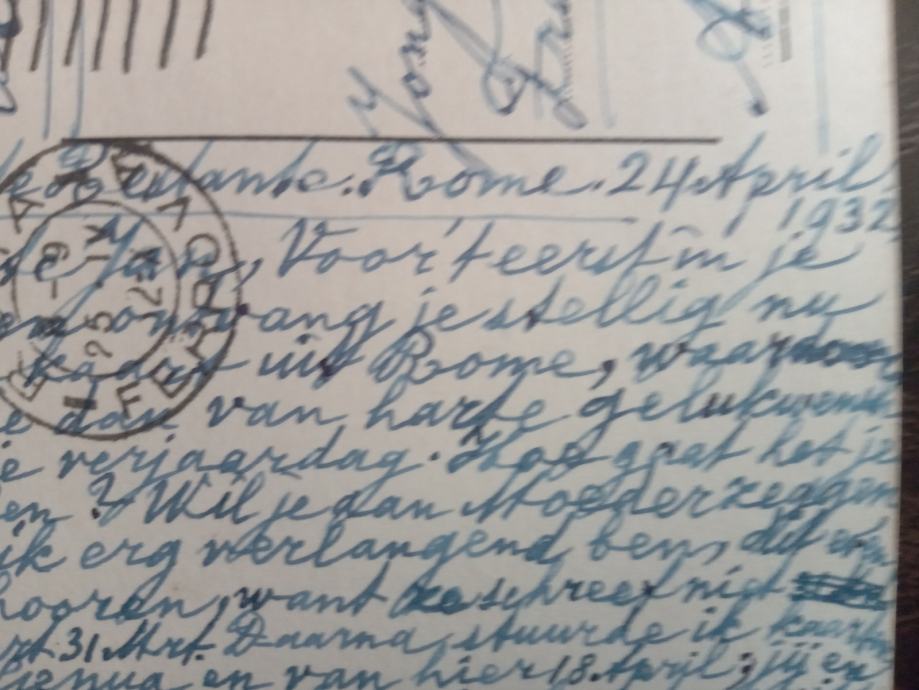 Restante. Rome. 24 April
1932
Jan, Voor 't eerst in je
ontvang je stellig nu
kaart uit Rome, waar
je dan van harte gelukwensch
je verjaardag. Hoe gaat het je
en? Wil je aan Moeder zeggen
ik erg verlangend ben, dit
hooren, want ze schreef niet
31 Mrt. Daarna stuurde ik kaart
Genua en van hier 18 April; jij en
FERRO